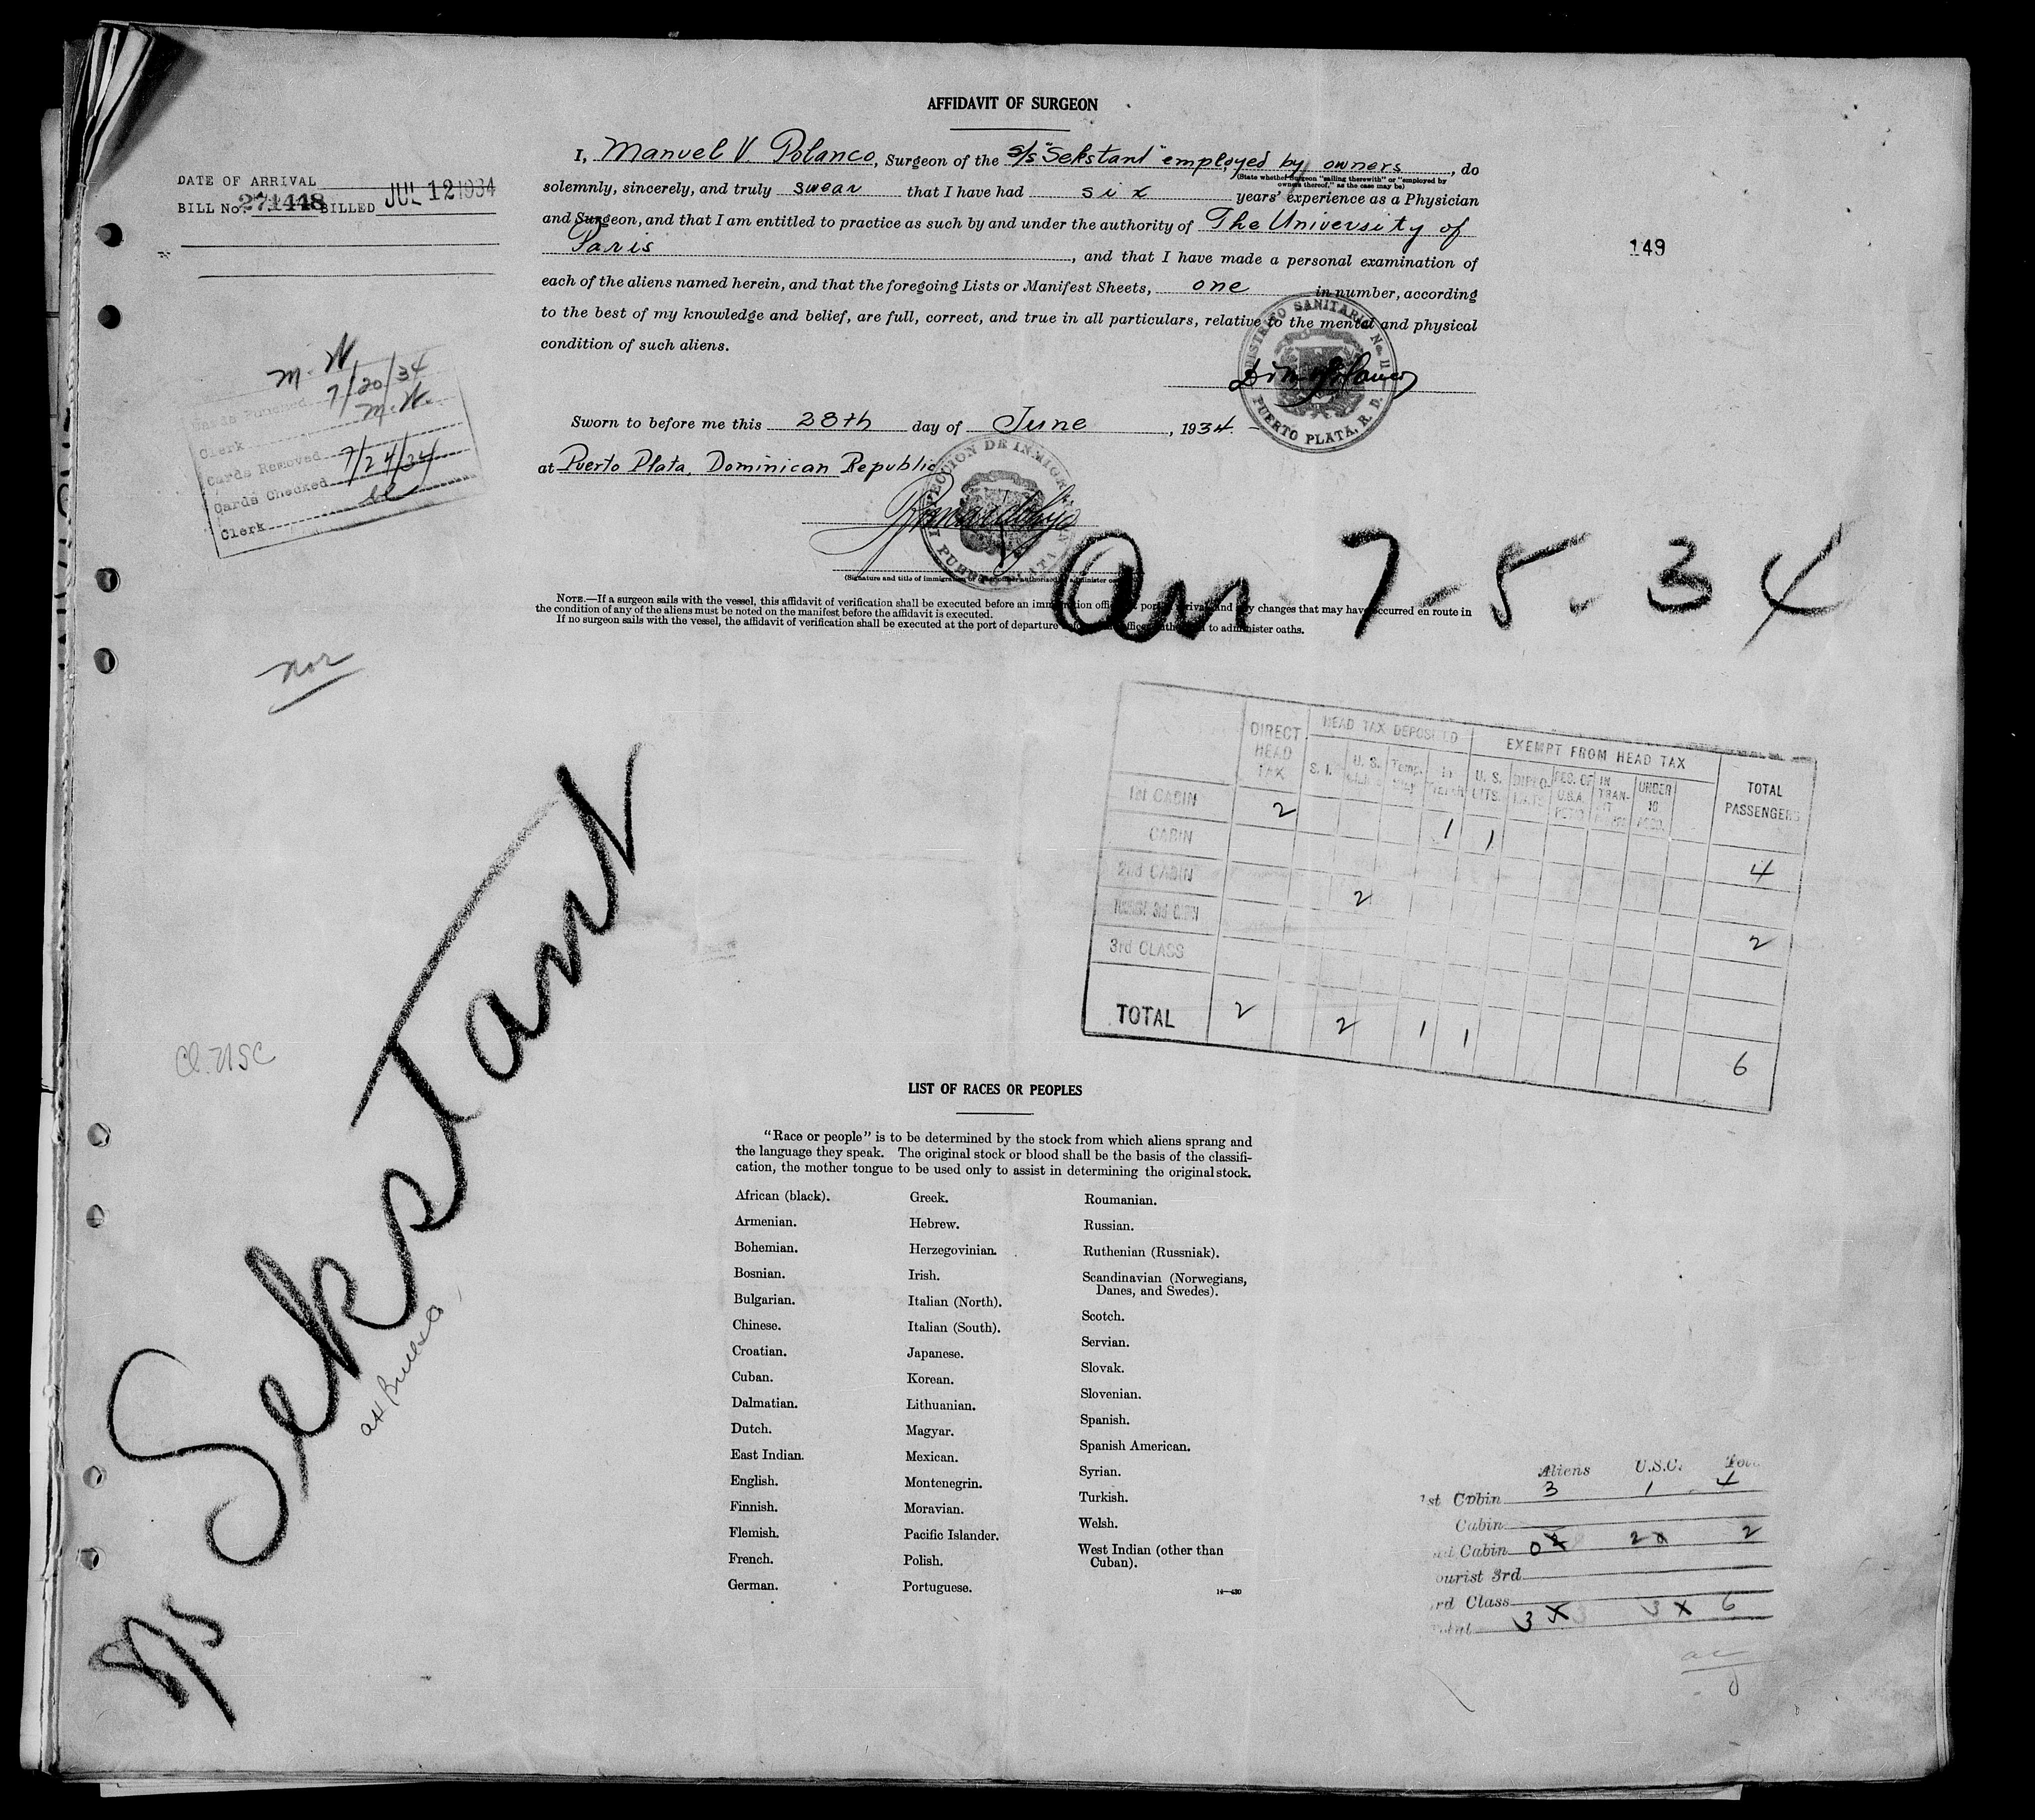 AFFIDAVIT OF SURGEON
I, Manuel V. Polanco, Surgeon of the S/S "Sekstant" employed by owners, do
(State whether Surgeon "sailing therewith" or "employed by
owners thereof," as the case may be)
solemnly, sincerely, and truly swear that I have had six years' experience as a Physician
and Surgeon, and that I am entitled to practice as such by and under the authority of The University of
Paris, and that I have made a personal examination of
each of the aliens named herein, and that the foregoing Lists or Manifest Sheets, one in number, according
to the best of my knowledge and belief, are full, correct, and true in all particulars, relative to the mental and physical
condition of such aliens.
DISTRITO SANITARIO No. 11
PUERTO PLATA, R. D.
Sworn to before me this 28th day of June, 1934.
at Puerto Plata, Dominican Republic
PUERTO PLATA
DATE OF ARRIVAL
BILL No. 271448 BILLED JUL 12 1934
149
M. W.
Cards Punched 7/20/34
Clerk M. W.
Cards Removed
Cards Checked 7/24/34
Clerk
Arr 7-5-34
NOTE.—If a surgeon sails with the vessel, this affidavit of verification shall be executed before an immigration officer at port of arrival and any changes that may have occurred en route in
the condition of any of the aliens must be noted on the manifest before the affidavit is executed.
If no surgeon sails with the vessel, the affidavit of verification shall be executed at the port of departure before an officer authorized to administer oaths.
nor
S/S Sekstant
DIRECT HEAD TAX
HEAD TAX DEPOSITED
EXEMPT FROM HEAD TAX
TOTAL PASSENGERS
S. I.
U. S.
In
U. S. CITS.
RES. OF U.S.A.
IN TRAN-
UNDER 16
1st CABIN 2 1 1 4
CABIN
2nd CABIN 2 2
TOURIST 3rd CABIN
3rd CLASS
TOTAL 2 2 1 1 6
LIST OF RACES OR PEOPLES
"Race or people" is to be determined by the stock from which aliens sprang and
the language they speak. The original stock or blood shall be the basis of the classifi-
cation, the mother tongue to be used only to assist in determining the original stock.
African (black).
Armenian.
Bohemian.
Bosnian.
Bulgarian.
Chinese.
Croatian.
Cuban.
Dalmatian.
Dutch.
East Indian.
English.
Finnish.
Flemish.
French.
German.
Greek.
Hebrew.
Herzegovinian.
Irish.
Italian (North).
Italian (South).
Japanese.
Korean.
Lithuanian.
Magyar.
Mexican.
Montenegrin.
Moravian.
Pacific Islander.
Polish.
Portuguese.
Roumanian.
Russian.
Ruthenian (Russniak).
Scandinavian (Norwegians,
Danes, and Swedes).
Scotch.
Servian.
Slovak.
Slovenian.
Spanish.
Spanish American.
Syrian.
Turkish.
Welsh.
West Indian (other than
Cuban).
14—430
Aliens U.S.C.
1st Cabin 3 1 4
Cabin
Cabin 0 2 2
ourist 3rd
rd Class
Total 3 3 6